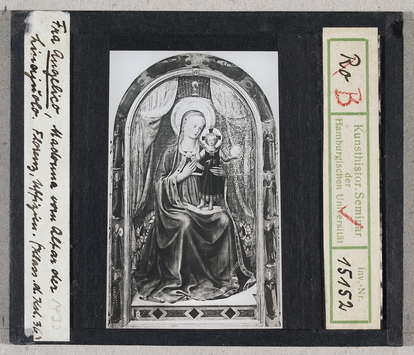 Fra Angelico, Madonna vom Altar der
Linaiuoli. Florenz, Uffizien. (Klass. d. Kst. 36)
Ro B
Kunsthistor. Seminar
der
Hamburgischen Universität
Inv.-Nr.
15152